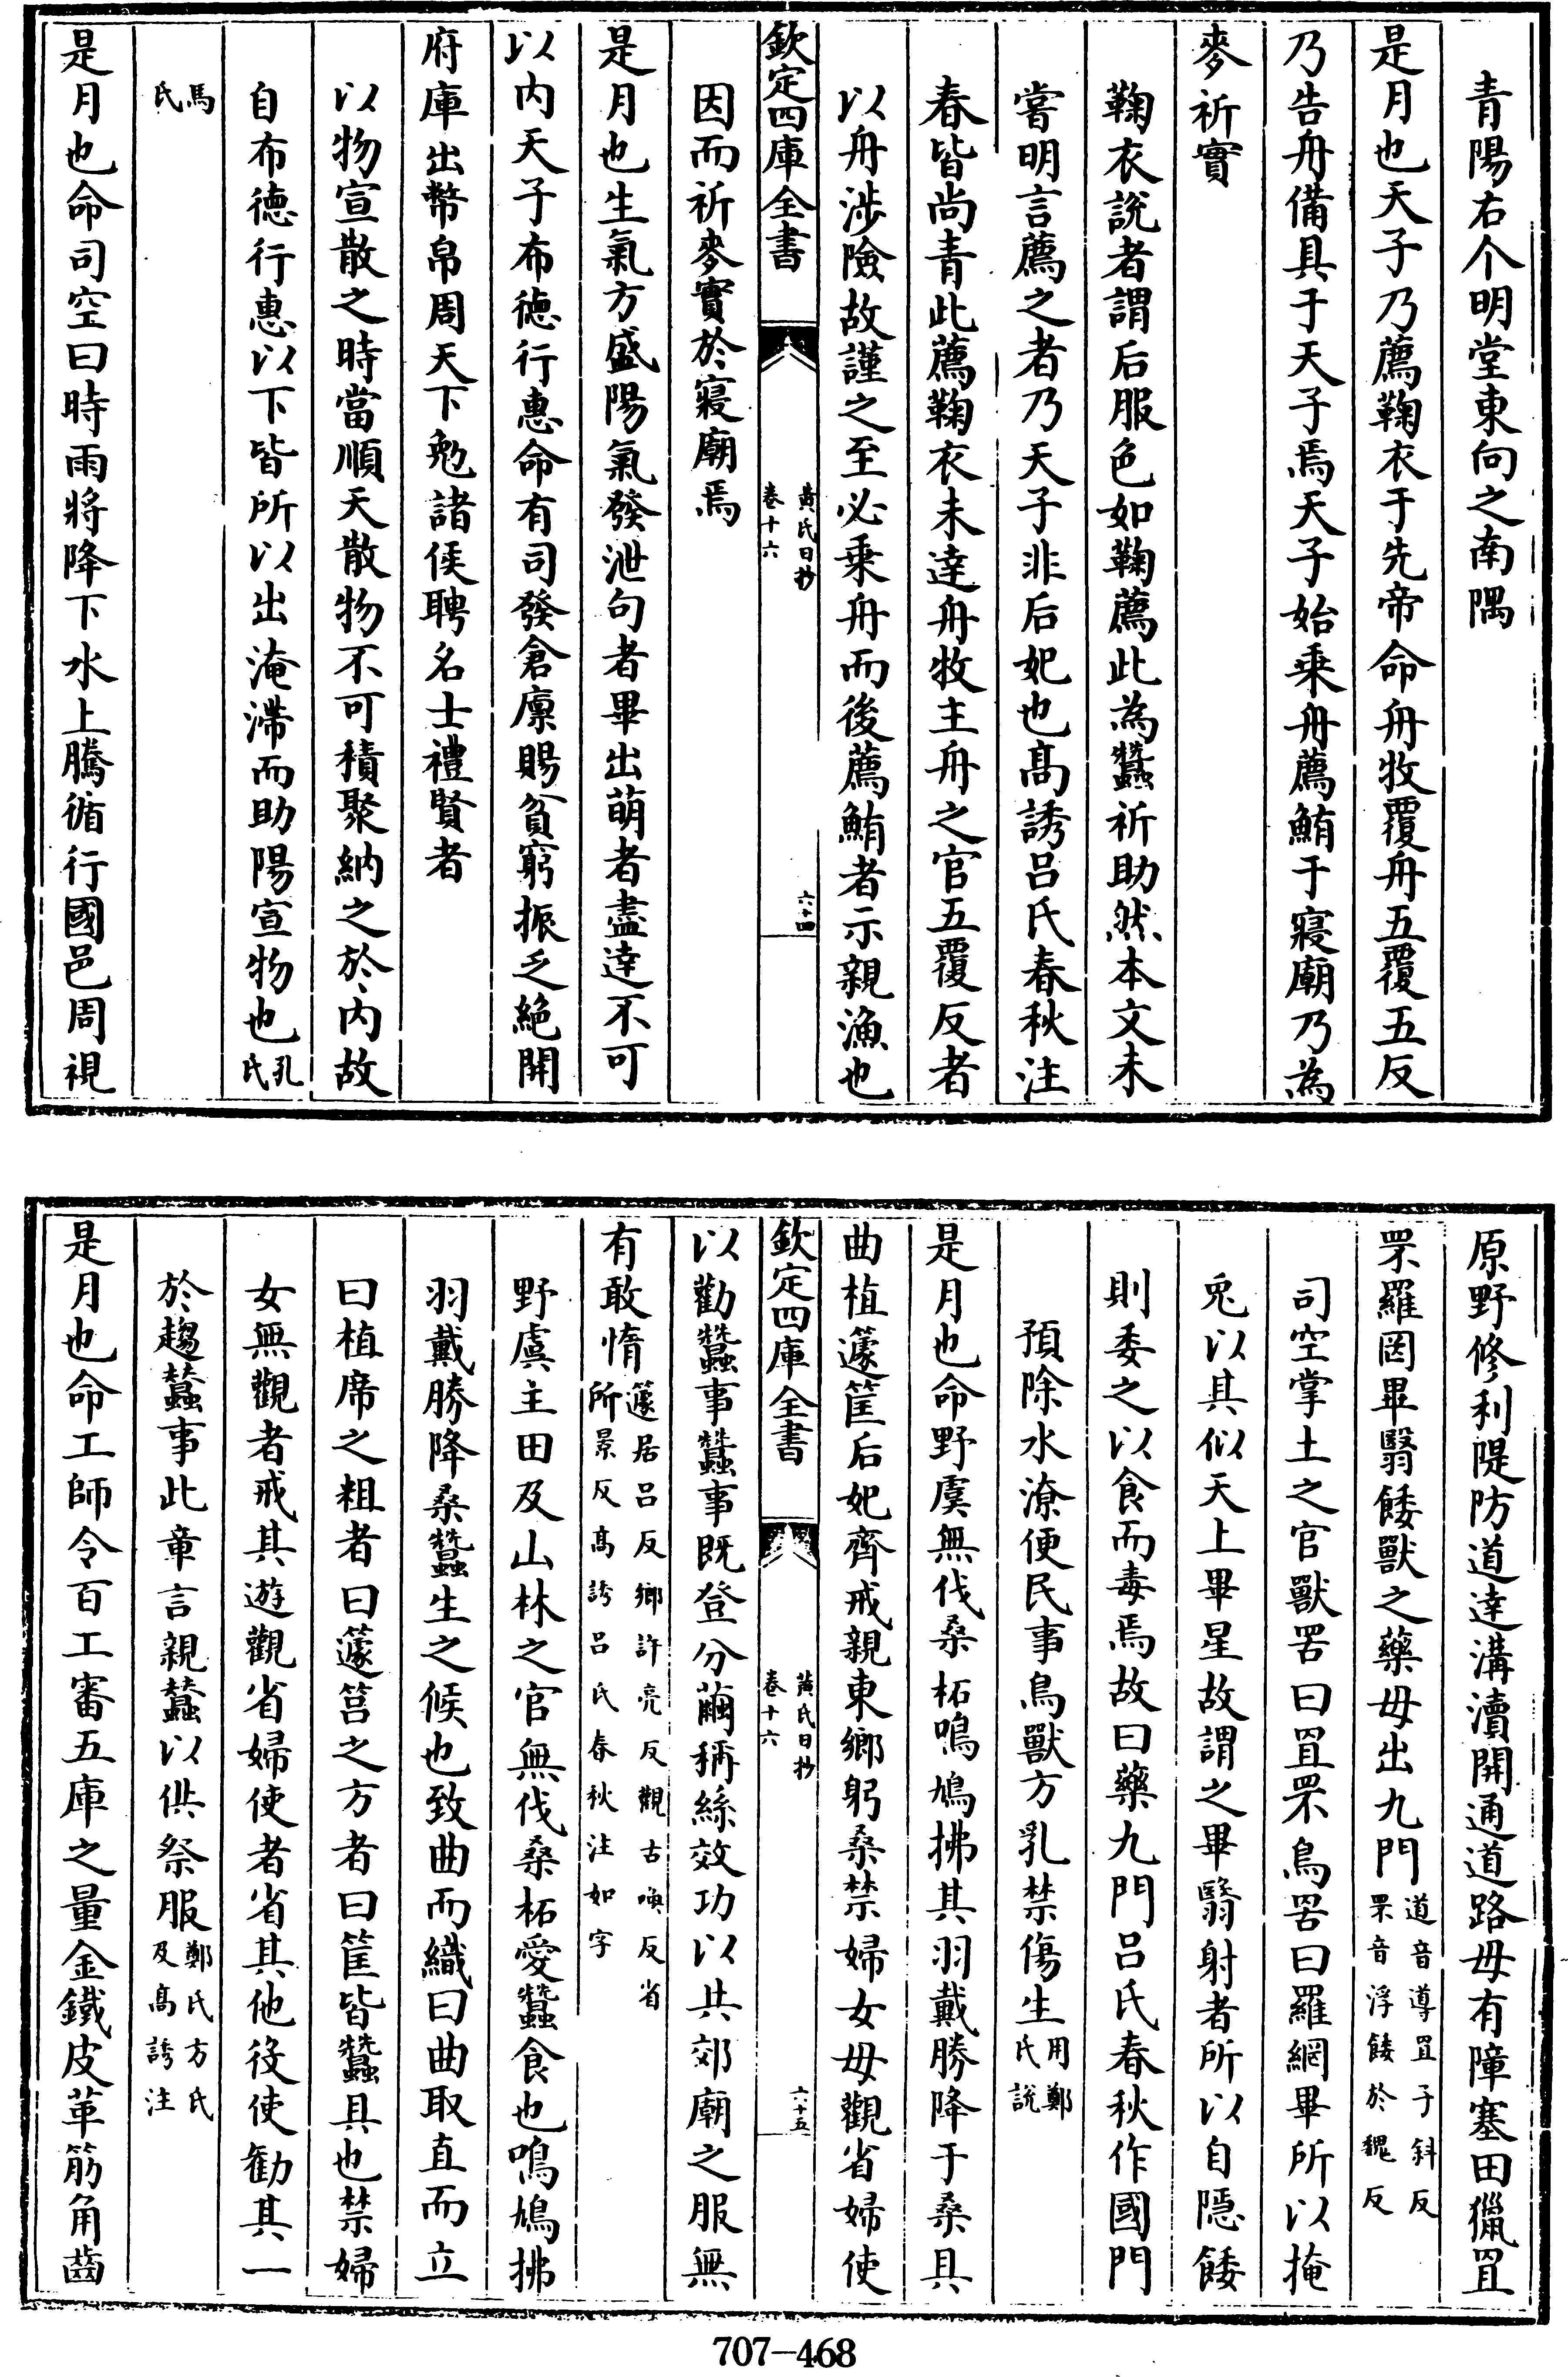 青陽右个明堂東向之南隅
是月也天子乃薦鞠衣于先帝命舟牧覆舟五覆五反
乃告舟備具于天子焉天子始乘舟薦鮪于寢廟乃為
麥祈實
鞠衣說者謂后服色如鞠薦此為蠶祈助然本文未
嘗明言薦之者乃天子非后妃也髙誘呂氏春秋注
春皆尚青此薦鞠衣未達舟牧主舟之官五覆反者
以舟涉險故謹之至必乘舟而後薦鮪者示親漁也
欽定四庫全書
黄氏日抄
卷十六
六十四
因而祈麥實於寢廟焉
是月也生氣方盛陽氣發泄句者畢出萌者盡達不可
以內天子布徳行惠命有司發倉廩賜貧窮振乏絶開
府庫出幣帛周天下勉諸侯聘名士禮賢者
以物宣散之時當順天散物不可積聚納之於內故
自布徳行惠以下皆所以出淹滯而助陽宣物也孔氏
馬氏
是月也命司空曰時雨將降下水上騰循行國邑周視
原野修利隄防道達溝瀆開通道路毋有障塞田獵罝
罘羅罔畢翳餧獸之藥毋出九門道音導罝子斜反
罘音浮餧於魏反
司空掌土之官獸罟曰罝罘鳥罟曰羅網畢所以掩
兎以其似天上畢星故謂之畢翳射者所以自隠餧
則委之以食而毒焉故曰藥九門呂氏春秋作國門
預除水潦便民事鳥獸方乳禁傷生用鄭氏說
是月也命野虞無伐桑柘鳴鳩拂其羽戴勝降于桑具
曲植籧筐后妃齊戒親東鄉躬桑禁婦女毋觀省婦使
欽定四庫全書
黄氏日抄
卷十六
六十五
以勸蠶事蠶事既登分繭稱絲效功以共郊廟之服無
有敢惰籧居呂反鄉許亮反觀古喚反省
所景反髙誘呂氏春秋注如字
野虞主田及山林之官無伐桑柘愛蠶食也鳴鳩拂
羽戴勝降桑蠶生之候也致曲而織曰曲取直而立
曰植席之粗者曰籧筥之方者曰筐皆蠶具也禁婦
女無觀者戒其遊觀省婦使者省其他役使勸其一
於趨蠶事此章言親蠶以供祭服鄭氏方氏
及髙誘注
是月也命工師令百工審五庫之量金鐵皮革筋角齒
707-468